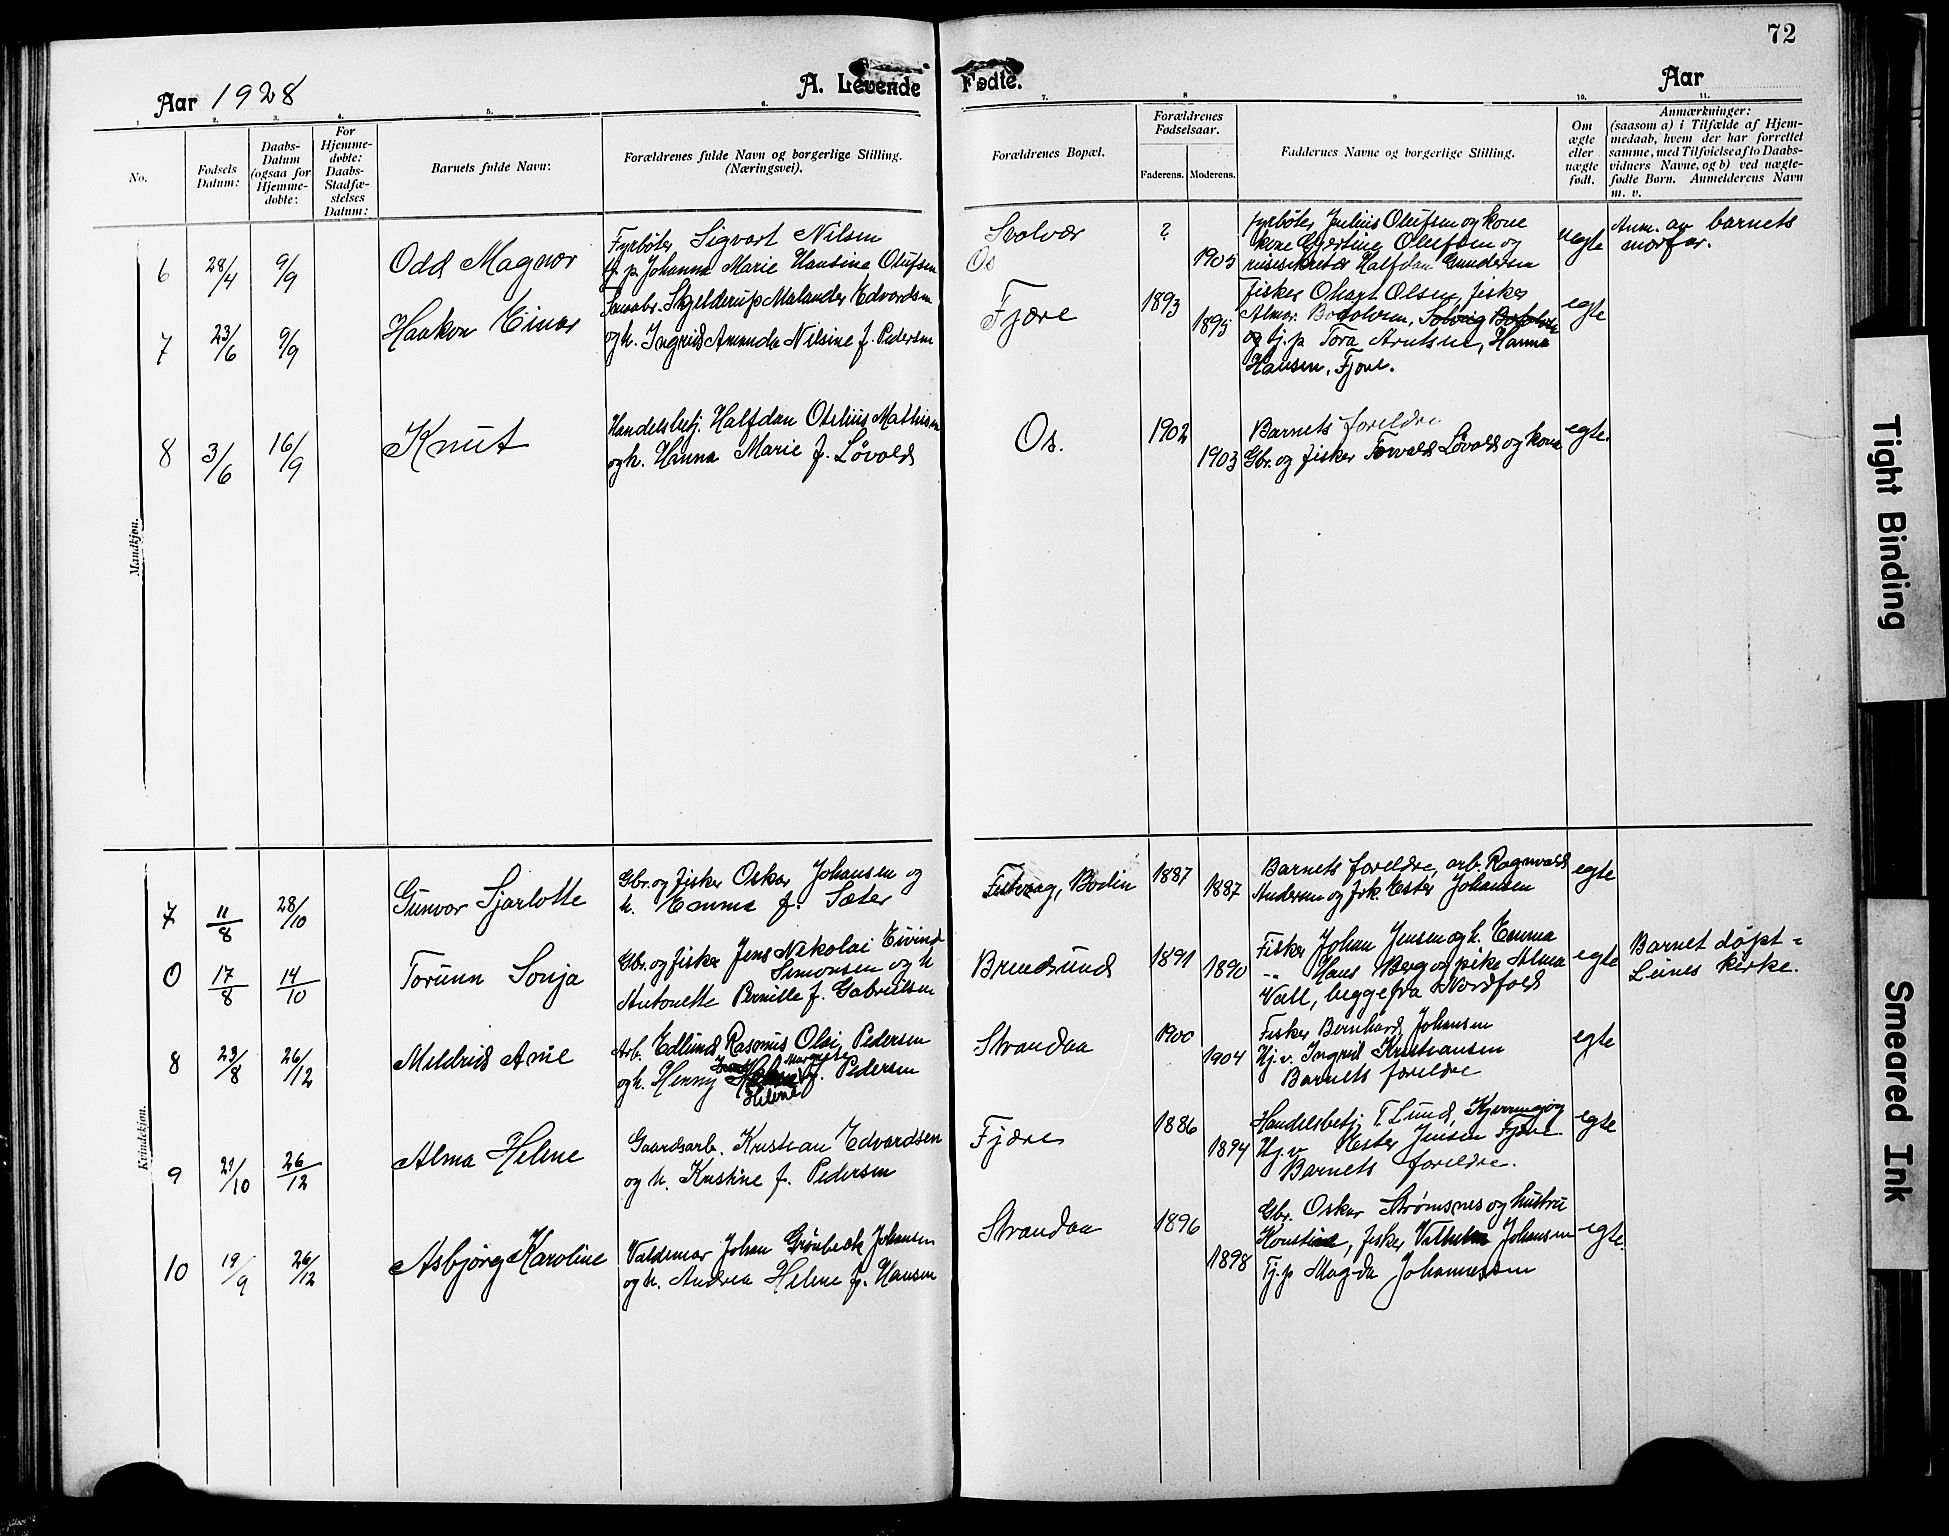 72
Aar 1928
A. Levende Fødte.
Aar
1. 2. 3. 4. 5. 6. 7. 8 9 10. 11.
No.
Fødsels Datum:
Daabs-Datum (ogsaa for Hjemme-døbte:
For Hjemme-døbte: Daabs-Stadfæ-stelses Datum:
Barnets fulde Navn:
Forældrenes fulde Navn og borgerlige Stilling.
(Næringsvei).
Forældrenes Bopæl.
Forældrenes Fødselsaar.
Faderens. Moderens.
Faddernes Navne og borgerlige Stilling.
Om ægte eller uægte født.
Anmærkninger:
(saasom a) i Tilfælde af Hjem-
medaab, hvem der har forrettet
samme, med Tilføielse af to Daabs-
vidners Navne, og b) ved uægte-
fødte Børn. Anmelderens Navn
m. v.
Mandkjøn.
6 28/4 9/9 Odd Magnor
Fyrbøter Sigvart Nilsen
tj. p. Johanna Marie Hansine Olufsen
Svolvær
Os
? 1905
fyrbøter Julius Olufsen og kone
kone Hjertine Olufsen og
Halfdan Gundersen
uegte
Anm. av barnets
morfar.
7 23/6 9/9 Haakon Einar
Skjelderup Malander Edvardsen
og h. Ingrid Amanda Nilsine f. Pedersen
Fjære
1893 1895
fisker Ohart Olsen, fisker
Almar Bodolvsen, Solveig
og tj. p Tora Arntsen, Hanna
Hansen, Fjære.
egte
8 3/6 16/9 Knut
Handelsbetj. Halfdan Otelius Mathisen
og h. Hanna Marie f. Løvold
Os.
1902 1903
Barnets foreldre
Gbr. og fisker Torvald Løvold og kone
egte.
Kvindekjøn.
7 11/8 28/10 Gunvor Sjarlotte
Gbr. og fisker Oskar Johansen og
h. Emma f. Sæter
Festvaag, Bodin
1887 1887
Barnets foreldre, arb. Ragnvald
Andersen og frk. Ester Johansen
egte
0 17/8 14/10 Torunn Sonja
Gbr. og fisker Jens Nikolai Eivind
Simonsen og h
Antonette Pernille f. Gabrielsen
Brendsund
1891 1890
Fisker Johan Jensen og h. Emma
-"- Hans Berg og pike Alma
Vall, begge fra Nordfold
egte
Barnet døpt -
Leines kirke.
8 23/8 26/12 Mildrid Arie
Arb. Edlund Rasmus Olai Pedersen
Margrete
og h. Henny f. Pedersen
Helene
Strandaa
1900 1904
Fisker Bernhard Johansen
Hj. v. Ingrid Kristiansen
Barnets foreldre
egte
9 21/10 26/12 Alma Helene
Gaardsarb. Kristian Edvardsen
og h. Kristine f. Pedersen
Fjære
1886 1894
Handelsbetj. T. Lund, Kjerringøy
Hj. v. Ester Jensen Fjære.
Barnets foreldre.
egte
10 19/9 26/12 Asbjørg Karoline
Valdemar Johan Grønbeck Johansen
og h. Andrea Helene f. Hansen
Strandaa
1896 1898
Gbr. Oskar Strømsnes og hustru
fisker Vilhelm Johansen
Tj. p Magda Johannessen
egte.
Tight Binding
Smeared Ink